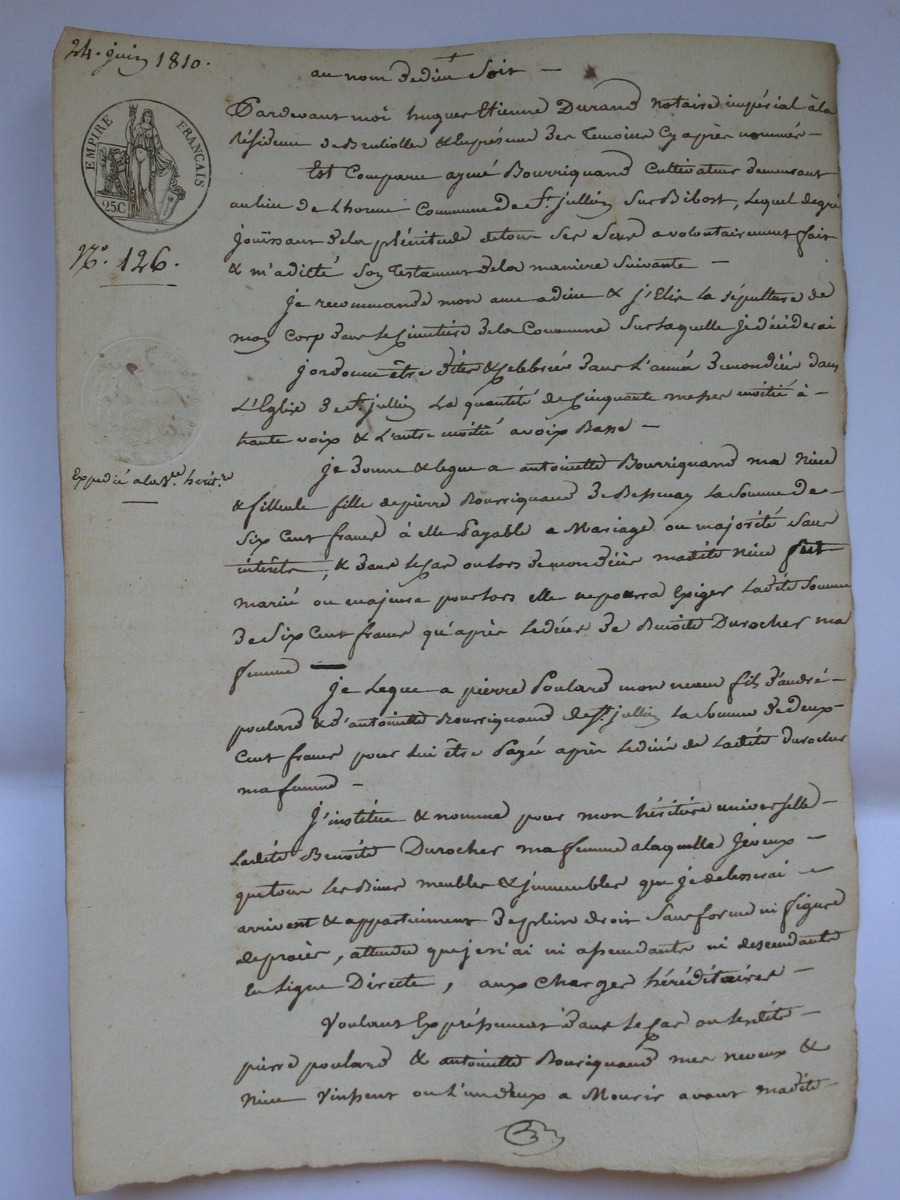 24. juin 1810.
EMPIRE FRANÇAIS
25C
N°. 126.
Expedié a la Ve. herit.e
au nom de dieu Soit —
Pardevant moi hugues Etienne Durand notaire impérial à la
Résidence de Brullioles & la présence des Temoins Cy après nommés —
Est Comparu aymé Bourriquand Cultivateur demeurant
au lieu de Lhorme Commune de St. jullien Sur Bibost, Lequel de gré
jouïssant de la plénitude de tous Ses Sens a volontairement fait
& m'a dicté Son Testament de la maniere Suivante —
Je recommande mon ame a dieu & j'Elis la sépulture de
mon Corp dans le Cimetière de la Commune Sur Laquelle je déciderai
J'ordonne être dites & Celebrées dans L'année de mon décès dans
L'Eglise de St. jullien La quantité de Cinquante messes moitié à —
haute voix & L'autre moitié a voix Basse —
Je donne & legue a antoinette Bourriquand ma niece
& filleule fille de pierre Bourriquand de Bessenay La Somme de —
Six Cent francs à elle Payable a Mariage ou majorité Sans
intérêts, & dans le Cas ou lors de mon décès madite niece fut
marié ou majeure pour lors elle ne pourra Exiger Ladite Somme
de Six Cent francs qu'après Le décès de Benoite Durocher ma
femme —
Je Legue a pierre Poulard mon neveu fils d'andré —
poulard & d'antoinette Bourriquand de St. jullien La Somme de deux —
Cent francs pour Lui être Payée après Le décès de Ladite Durocher
ma femme —
J'institue & nomme pour mon héritière universelle —
Ladite Benoite Durocher ma femme a laquelle Je veux —
que tous Les Biens meubles & immeubles que je delaisserai —
arrivent & appartiennent de plein droit Sans forme ni figure
de procès, attendu que je n'ai ni assendants ni descendants
En Ligne Directe, aux Charges héréditaires —
Voulant Expréssement dans le Cas ou lesdits —
pierre poulard & antoinette Bouriquand mes neveux &
niece vinssent ou l'un d'eux a Mourir avant madite